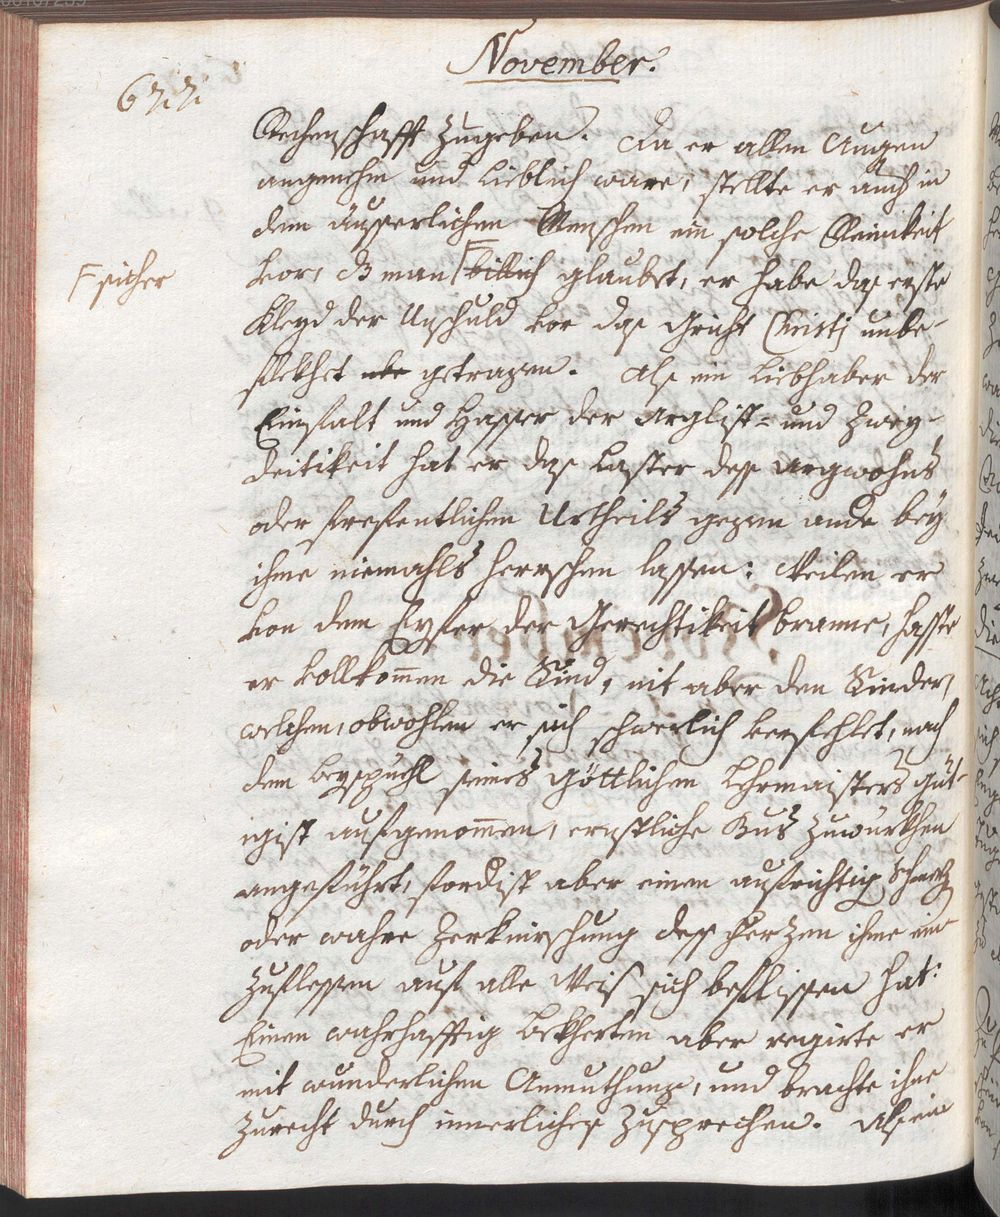 November.
677.
Rechenschafft zugeben. Da er allen Augen
angenehm und lieblich ware, stellte er auch in
dem äusserlichen Menschen ein solche Reinikeit
vor, dz man Γ billich glaubet, er habe das erste
Γ sicher
Kleyd der Unschuld vor das Gricht Christi unbe-
flekhet getragen. Als ein Liebhaber der
Einfalt und Hasser der Arglist- und Zwey-
deitikeit hat er das Laster dess Argwohns
oder frefentlichen Urtheils gegen andr bey
ihme niemahls herrschen lassen: Weilen er
von dem Eyfer der Gerechtikeit branne, hasste
er vollkom̄en die Sünd, nit aber den Sünder,
welchen, obwohlen er sich schwerlich verfehlet, nach
dem Beyspühl seines Göttlichen Lehrmaisters güt-
igist aufgenom̄en, ernstliche Bus zuwürkhen
angeführt, fordist aber einen aufrichtig Schmertz
oder wahre Zerknirschung dess Herzen ihme ein-
zuflessen auf alle Weis sich beflissen hat:
Einen wahrhafftig bekherten aber regirte er
mit wunderlichen Anmuthung, und brachte ihne
zurecht durch innerliches Zusprechen. Als ein